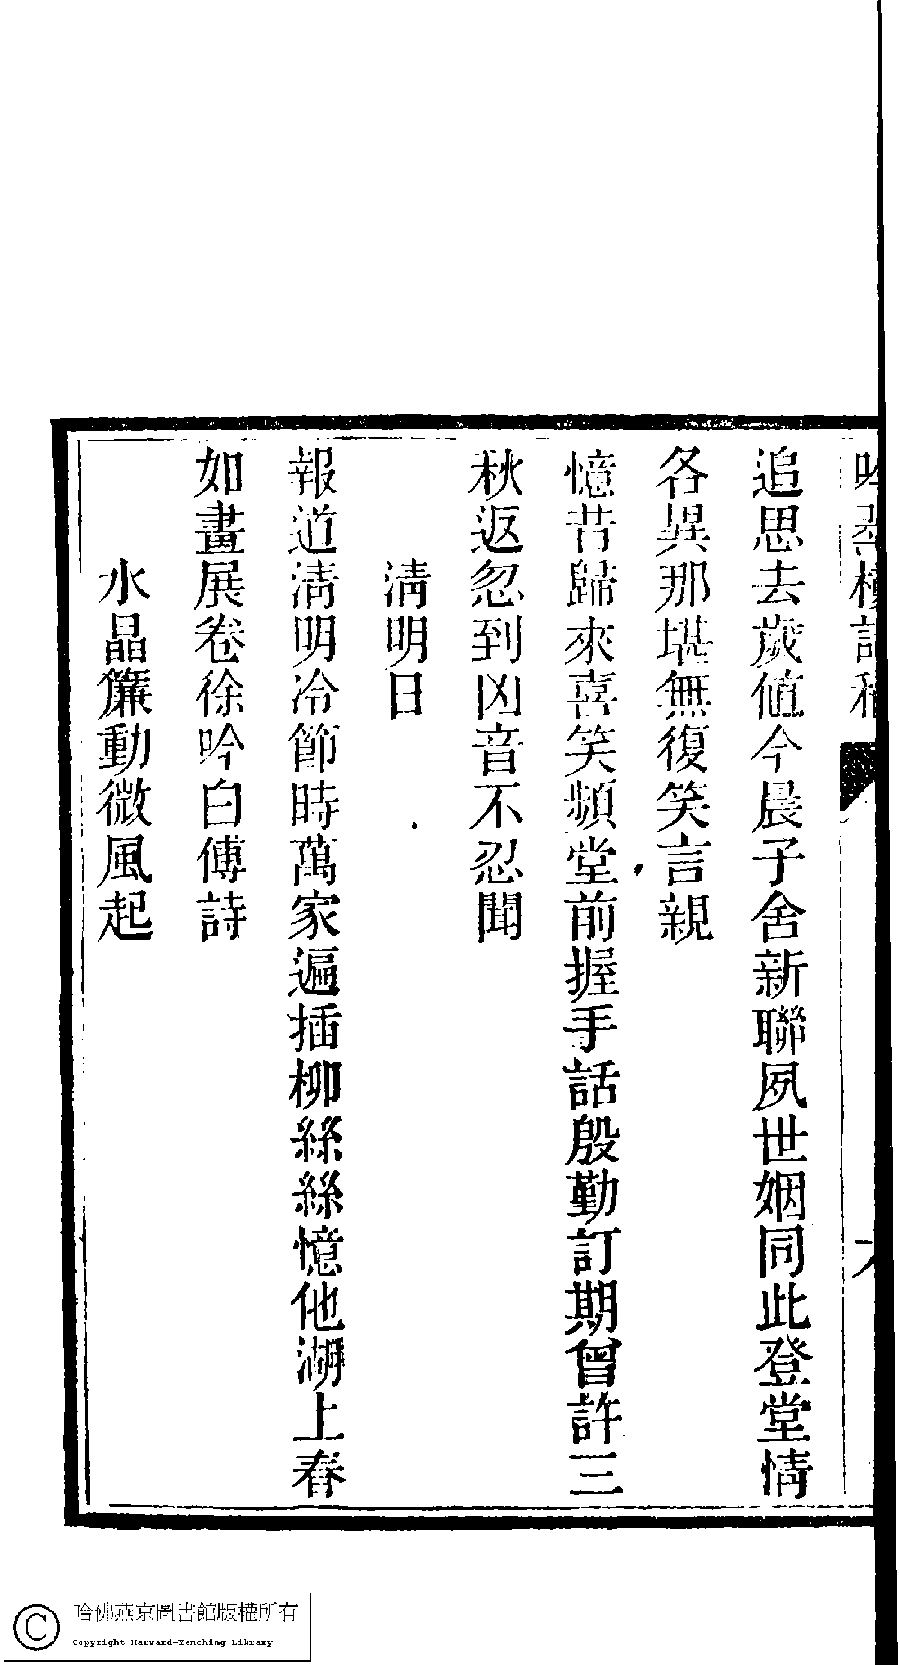 追思去歲值今晨子舍新聯夙世姻同此登堂情
各異那堪無復笑言親
憶昔歸來喜笑頻堂前握手話殷勤訂期曾許三
秋返忽到凶音不忍聞
清明日
報道清明冷節時萬家遍插柳絲絲憶他湖上春
如畫展卷徐吟白傅詩
水晶簾動微風起
哈佛燕京圖書館版權所有
Copyright Harvard-Yenching Library